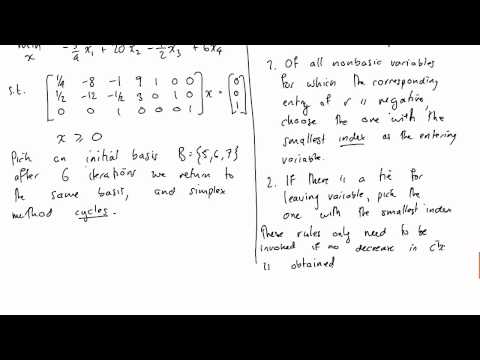 x -3/4 x1 + 20 x2 - 1/2 x3 + 6x4
s.t. [ 1/4 -8 -1 9 1 0 0 ] x = [ 0 ]
[ 1/2 -12 -1/2 3 0 1 0 ] [ 0 ]
[ 0 0 1 0 0 0 1 ] [ 1 ]
x ⩾ 0
Pick an initial basis B = {5,6,7}
after 6 itrations we return to
the same basis, and simplex
method cycles.
1. Of all nonbasic variables
for which the corresponding
entry of r is negative,
choose the one with the
smallest index as the entering
variable.
2. If there is a tie for
leaving variable, pick the
one with the smallest index
These rules only need to be
invoked if no decrease in cᵀx
is obtained